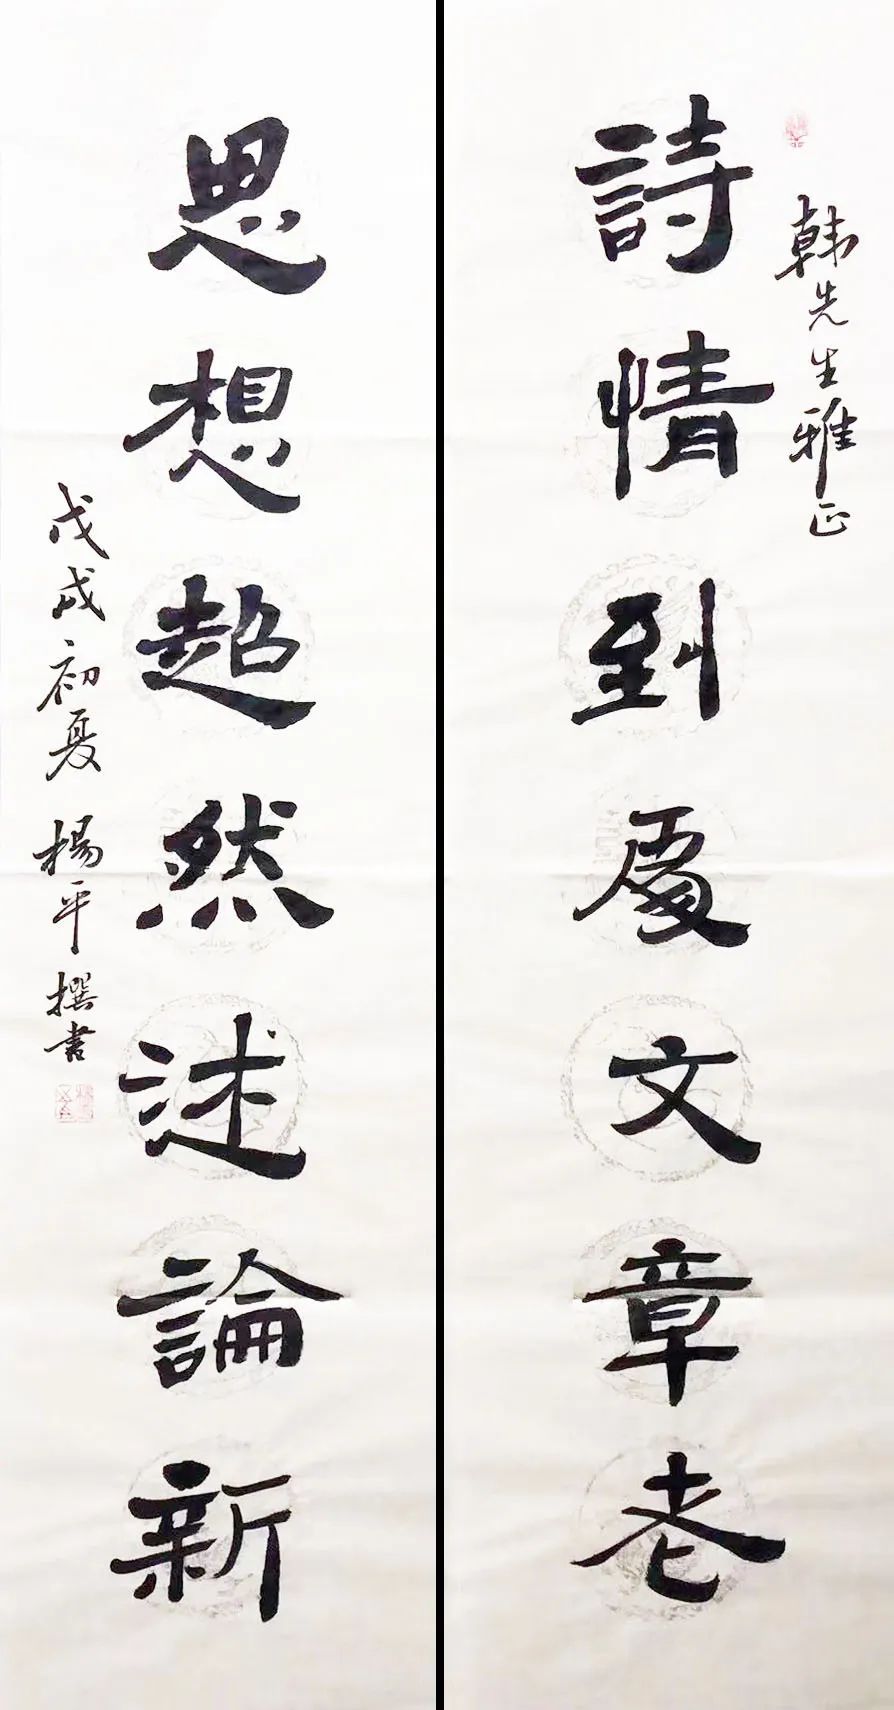 韩先生雅正
詩情到處文章老
思想超然述論新
戊戌初夏 楊平撰書